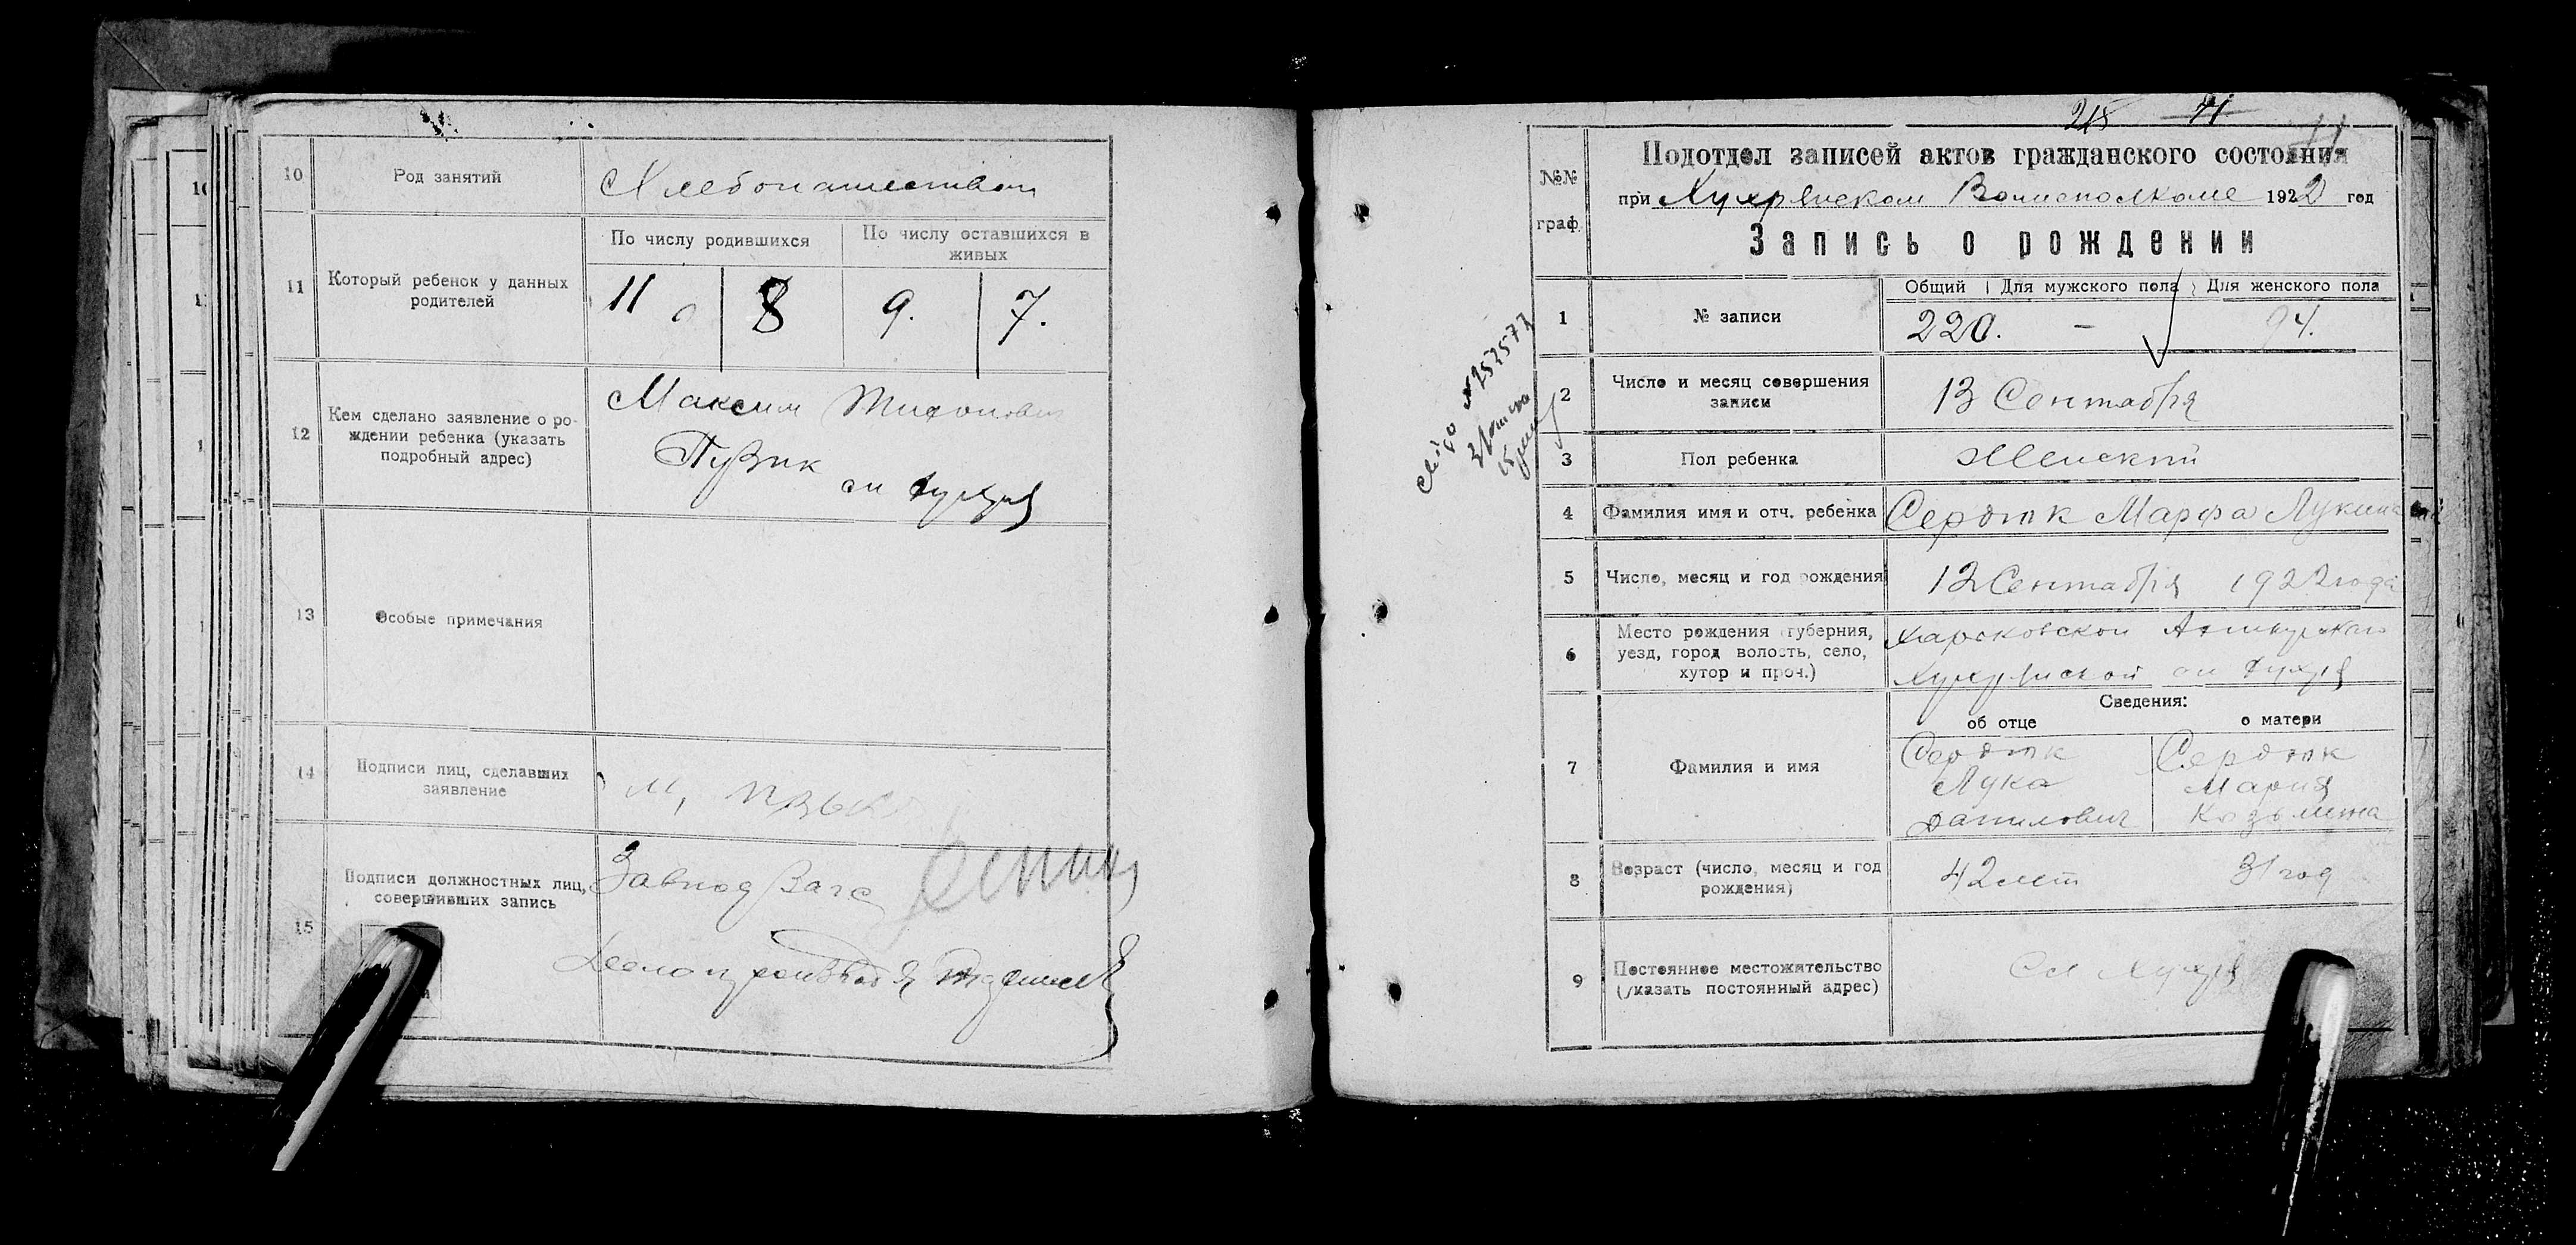 10 Род занятий Хлебопашеством
По числу родившихся По числу оставшихся в живых
11 Который ребенок у данных родителей 11 8 9. 7.
12 Кем сделано заявление о ро-
ждении ребенка (указать
подробный адрес)
Максим Тихонович
Пузик
13 Особые примечания
14 Подписи лиц, сделавших
заявление
15 Подписи должностных лиц,
совершивших запись
Завпод Загс
215 71
№№
граф.
Подотдел записей актов гражданского состояния
при Хухрянском Волисполкоме 1922 год
Запись о рождении
Общий Для мужского пола Для женского пола
1 № записи 220. - 94.
2 Число и месяц совершения
записи
13 Сентября
3 Пол ребенка Женский
4 Фамилия имя и отч. ребенка Сердюк Марфа Лукина
5 Число, месяц и год рождения 12 Сентября 1922 года
6 Место рождения (губерния,
уезд, город волость, село,
хутор и проч.)
Харьковской
Хухрянской сл Хухря
Сведения:
об отце о матери
7 Фамилия и имя
Сердюк Сердюк
Лука Мария
Данилович Козьмина
8 Возраст (число, месяц и год
рождения)
42 лет 31 год
9 Постоянное местожительство
(указать постоянный адрес)
Сл Хухря